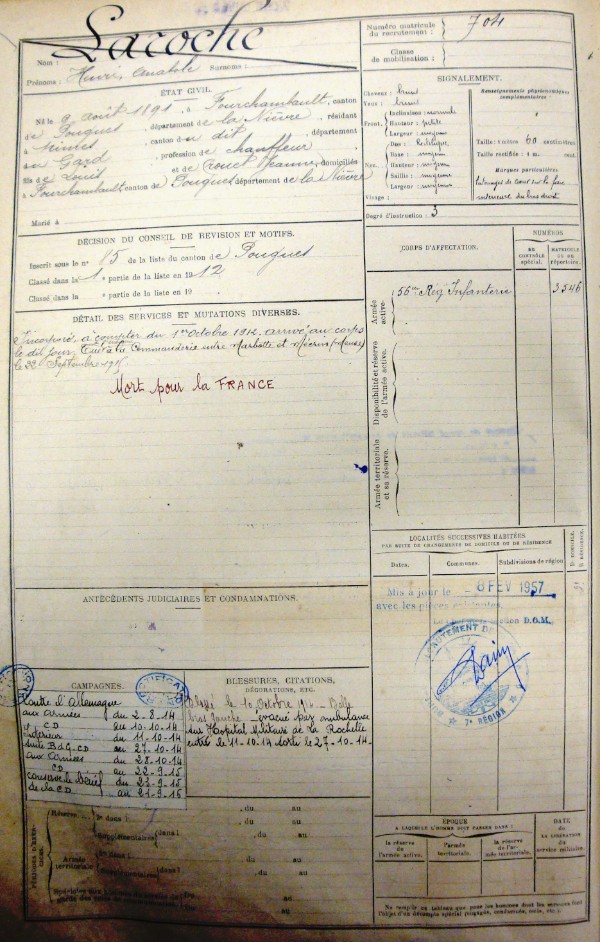 Laroche
Nom :
Prénoms : Henri, Anatole Surnoms :
Numéro matricule du recrutement : 704
Classe de mobilisation :
ÉTAT CIVIL.
Né le 9 août 1891, à Fourchambault, canton
de Pougues, département de la Nièvre, résidant
à Nîmes, canton du dit, département
du Gard, profession de chauffeur
fils de Louis et de Jeanne, domiciliés
à Fourchambault, canton de Pougues, département de la Nièvre
Marié à
SIGNALEMENT.
Cheveux : brun
Yeux : brun
Front. Inclinaison : normale
Hauteur : petite
Largeur : moyenne
Nez. Dos : Rectiligne
Base : moyen
Hauteur : moyenne
Saillie : moyenne
Largeur : moyenne
Visage :
Renseignements physionomiques complémentaires :
Taille : 1 mètre 60 centimètres
Taille rectifiée : 1 m. cent.
Marques particulières
Degré d'instruction : 3
DÉCISION DU CONSEIL DE REVISION ET MOTIFS.
Inscrit sous le n° 15 de la liste du canton de Pougues
Classé dans la 1 partie de la liste en 1912
Classé dans la partie de la liste en 19
CORPS D'AFFECTATION.
NUMÉROS
AU CONTRÔLE spécial.
MATRICULE OU AU répertoire.
Armée active.
56me Rég Infanterie 3546
Disponibilité et réserve de l'armée active.
Armée territoriale et sa réserve.
DÉTAIL DES SERVICES ET MUTATIONS DIVERSES.
Incorporé à compter du 1er Octobre 1912. arrivé au corps
le dit jour. Tué à la Commanderie entre Marbotte et Mécrin (Meuse)
le 22 Septembre 1915
Mort pour la FRANCE
LOCALITÉS SUCCESSIVES HABITÉES
PAR SUITE DE CHANGEMENTS DE DOMICILE OU DE RÉSIDENCE
Dates.
Communes.
Subdivisions de région
D. DOMICILE.
R. RÉSIDENCE.
Mis à jour le 8 FEV 1957
avec les pièces existantes.
D.O.M.
7e RÉGION
ANTÉCÉDENTS JUDICIAIRES ET CONDAMNATIONS.
CAMPAGNES.
Contre l'Allemagne
aux Armées du 2-8-14
CD au 10-10-14
Intérieur du 11-10-14
CD au 27-10-14
aux Armées du 28-10-14
CD au 22-9-15
du 23-9-15
de la CD au 21-9-16
BLESSURES, CITATIONS,
DÉCORATIONS, ETC.
Blessé le 10 Octobre 1914 Balle
bras gauche évacué par ambulance
sur Hopital Militaire de la Rochelle
entré le 11-10-14 sorti le 27-10-14.
PÉRIODES D'EXERCICES.
Réserve
1re dans l , du au
Supplémentaires (dans) , du au
Armée territoriale
1re dans l , du au
Supplémentaires (dans) , du au
ÉPOQUE
A LAQUELLE L'HOMME DOIT PASSER DANS :
la réserve de l'armée active.
l'armée territoriale.
la réserve de l'armée territoriale.
DATE
DE LA LIBÉRATION DU service militaire.